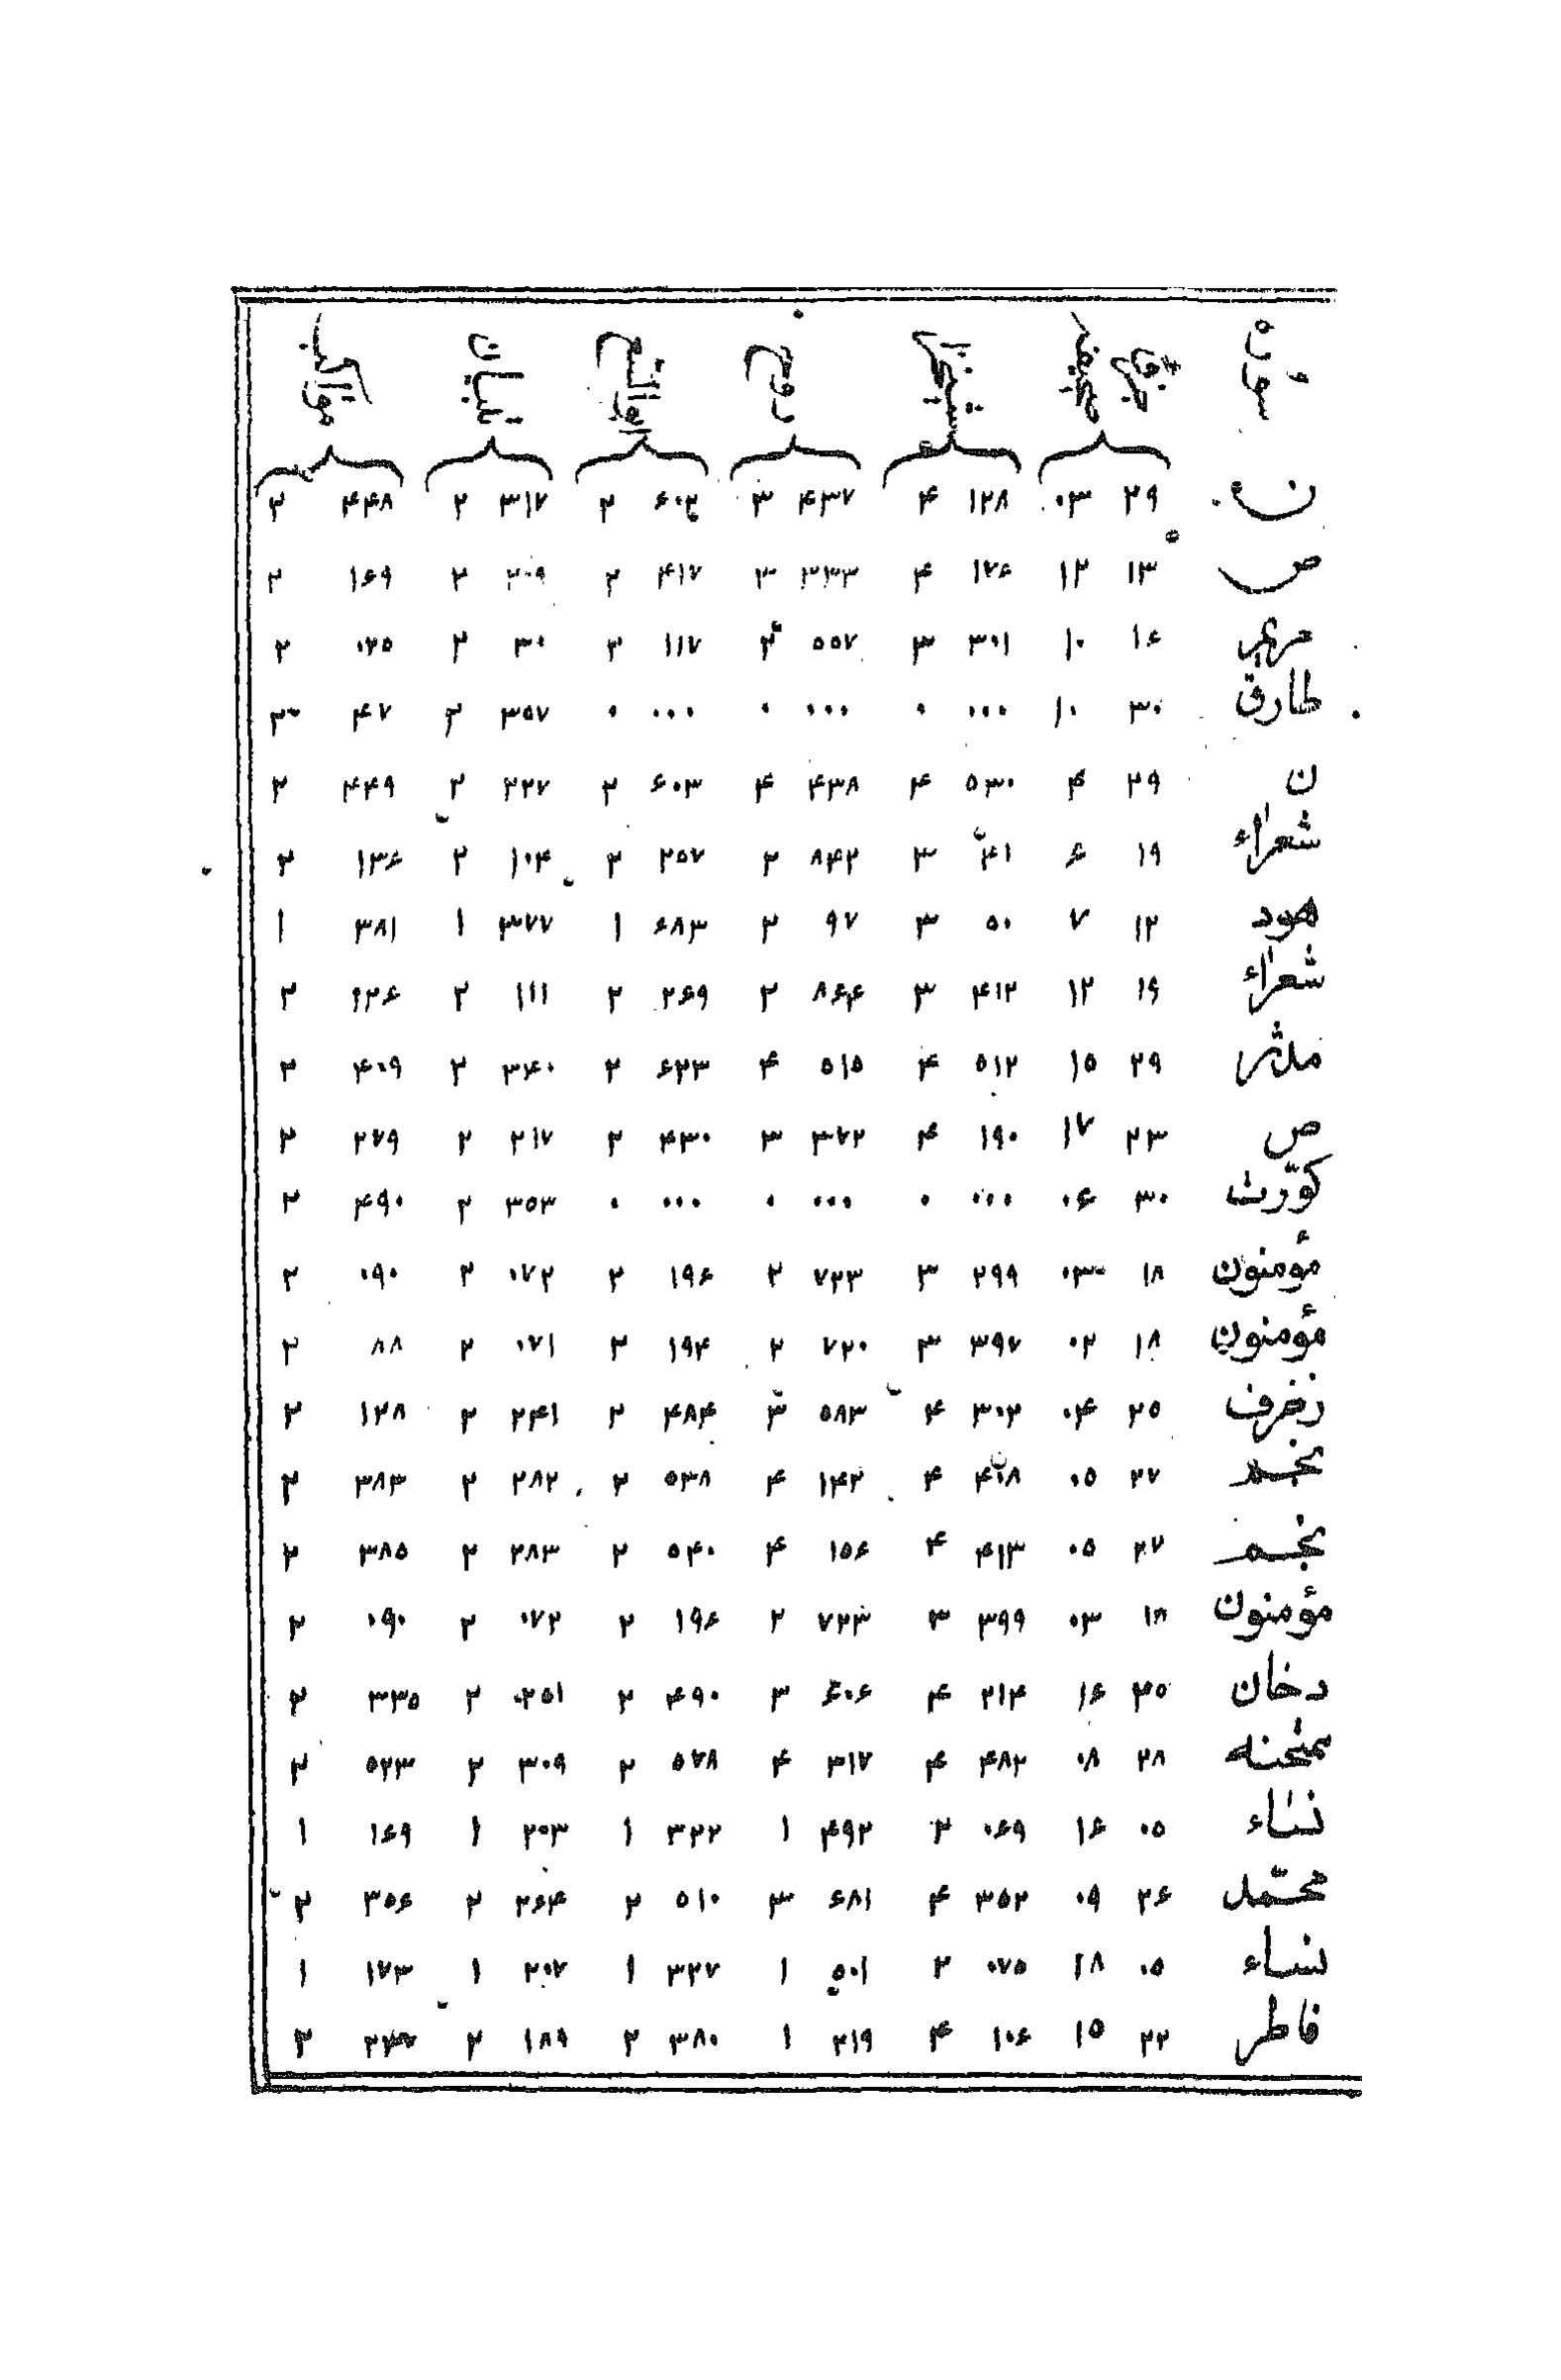 ن ۲۹ ۰۳ ۱۲۸ ۴ ۴۳۷ ۳ ۲ ۳۱۷ ۲ ۴۴۸ ۲
ص ۱۳ ۱۲ ۱۷۶ ۴ ۳۳۳ ۳ ۴۱۷ ۲ ۲۰۹ ۲ ۱۶۹ ۲
مریم ۱۶ ۱۰ ۳۰۱ ۳ ۵۵۷ ۲ ۱۱۷ ۲ ۳۰ ۲ ۰۲۵ ۲
طارق ۳۰ ۱۰ ۰۰۰ ۰ ۰۰۰ ۰ ۰۰۰ ۰ ۳۵۷ ۲ ۴۷
ن ۲۹ ۴ ۵۳۰ ۴ ۴۳۸ ۴ ۶۰۳ ۲ ۲۲۷ ۲ ۴۴۹ ۲
شعراء ۱۹ ۶ ۴۱ ۳ ۸۴۲ ۲ ۲۵۷ ۲ ۱۰۴ ۲ ۱۳۶ ۲
هود ۱۲ ۷ ۵۰ ۳ ۹۷ ۲ ۶۸۳ ۱ ۳۷۷ ۱ ۳۸۱ ۱
شعراء ۱۹ ۱۲ ۴۱۲ ۳ ۸۶۴ ۲ ۲۶۹ ۲ ۱۱۱ ۲ ۲
مدثر ۲۹ ۱۵ ۵۱۲ ۴ ۵۱۵ ۴ ۶۲۳ ۲ ۳۴۰ ۲ ۴۰۹ ۲
ص ۲۳ ۱۷ ۱۹۰ ۴ ۳۷۲ ۳ ۴۳۰ ۲ ۲۱۷ ۲ ۲۷۹ ۲
کوّرت ۳۰ ۰۶ ۰۰۰ ۰ ۰۰۰ ۰ ۰۰۰ ۰ ۳۵۳ ۲ ۴۹۰ ۲
مؤمنون ۱۸ ۰۳ ۲۹۹ ۳ ۷۲۳ ۲ ۱۹۶ ۲ ۰۷۲ ۲ ۰۹۰ ۲
مؤمنون ۱۸ ۰۲ ۳۹۷ ۳ ۷۲۰ ۲ ۱۹۴ ۲ ۰۷۱ ۲ ۸۸ ۲
زخرف ۲۵ ۰۴ ۳۰۲ ۴ ۵۸۳ ۳ ۴۸۴ ۲ ۲۴۱ ۲ ۱۲۸ ۲
نجم ۲۷ ۰۵ ۴۱۸ ۴ ۱۴۲ ۴ ۵۳۸ ۲ ۲۸۲ ۲ ۳۸۳ ۲
نجم ۲۷ ۰۵ ۴۱۳ ۴ ۱۵۶ ۴ ۵۴۰ ۲ ۲۸۳ ۲ ۳۸۵ ۲
مؤمنون ۱۸ ۰۳ ۳۹۹ ۳ ۷۲۳ ۲ ۱۹۶ ۲ ۰۷۲ ۲ ۰۹۰ ۲
دخان ۲۵ ۱۶ ۲۱۴ ۴ ۶۰۶ ۳ ۴۹۰ ۲ ۲۵۱ ۲ ۳۳۵ ۲
ممتحنه ۲۸ ۰۸ ۴۸۲ ۴ ۳۱۷ ۴ ۵۷۸ ۲ ۳۰۹ ۲ ۵۲۳ ۲
نساء ۰۵ ۱۶ ۰۶۹ ۲ ۴۹۲ ۱ ۳۲۲ ۱ ۲۰۳ ۱ ۱۶۹ ۱
محمّد ۲۶ ۰۹ ۳۵۲ ۴ ۶۸۱ ۳ ۵۱۰ ۲ ۲۶۴ ۲ ۳۵۶ ۲
نساء ۰۵ ۱۸ ۰۷۵ ۲ ۵۰۱ ۱ ۳۲۷ ۱ ۲۰۷ ۱ ۱۷۳ ۱
فاطر ۲۲ ۱۵ ۱۰۶ ۴ ۲۱۹ ۱ ۳۸۰ ۲ ۱۸۹ ۲ ۲